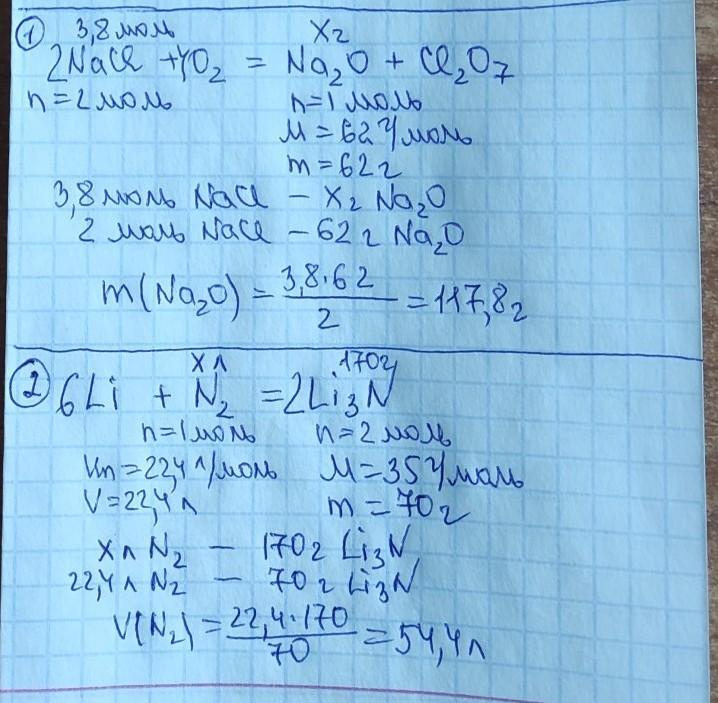 ① 3,8 моль x г
2NaCl + 4O₂ = Na₂O + Cl₂O₇
n=2 моль n=1 моль
M=62 г/моль
m=62 г
3,8 моль NaCl – x г Na₂O
2 моль NaCl – 62 г Na₂O
m(Na₂O) = 3,8·62 / 2 = 117,8 г
② x л 170 г
6Li + N₂ = 2Li₃N
n=1 моль n=2 моль
Vm=22,4 л/моль M=35 г/моль
V=22,4 л m=70 г
x л N₂ – 170 г Li₃N
22,4 л N₂ – 70 г Li₃N
V(N₂) = 22,4·170 / 70 = 54,4 л